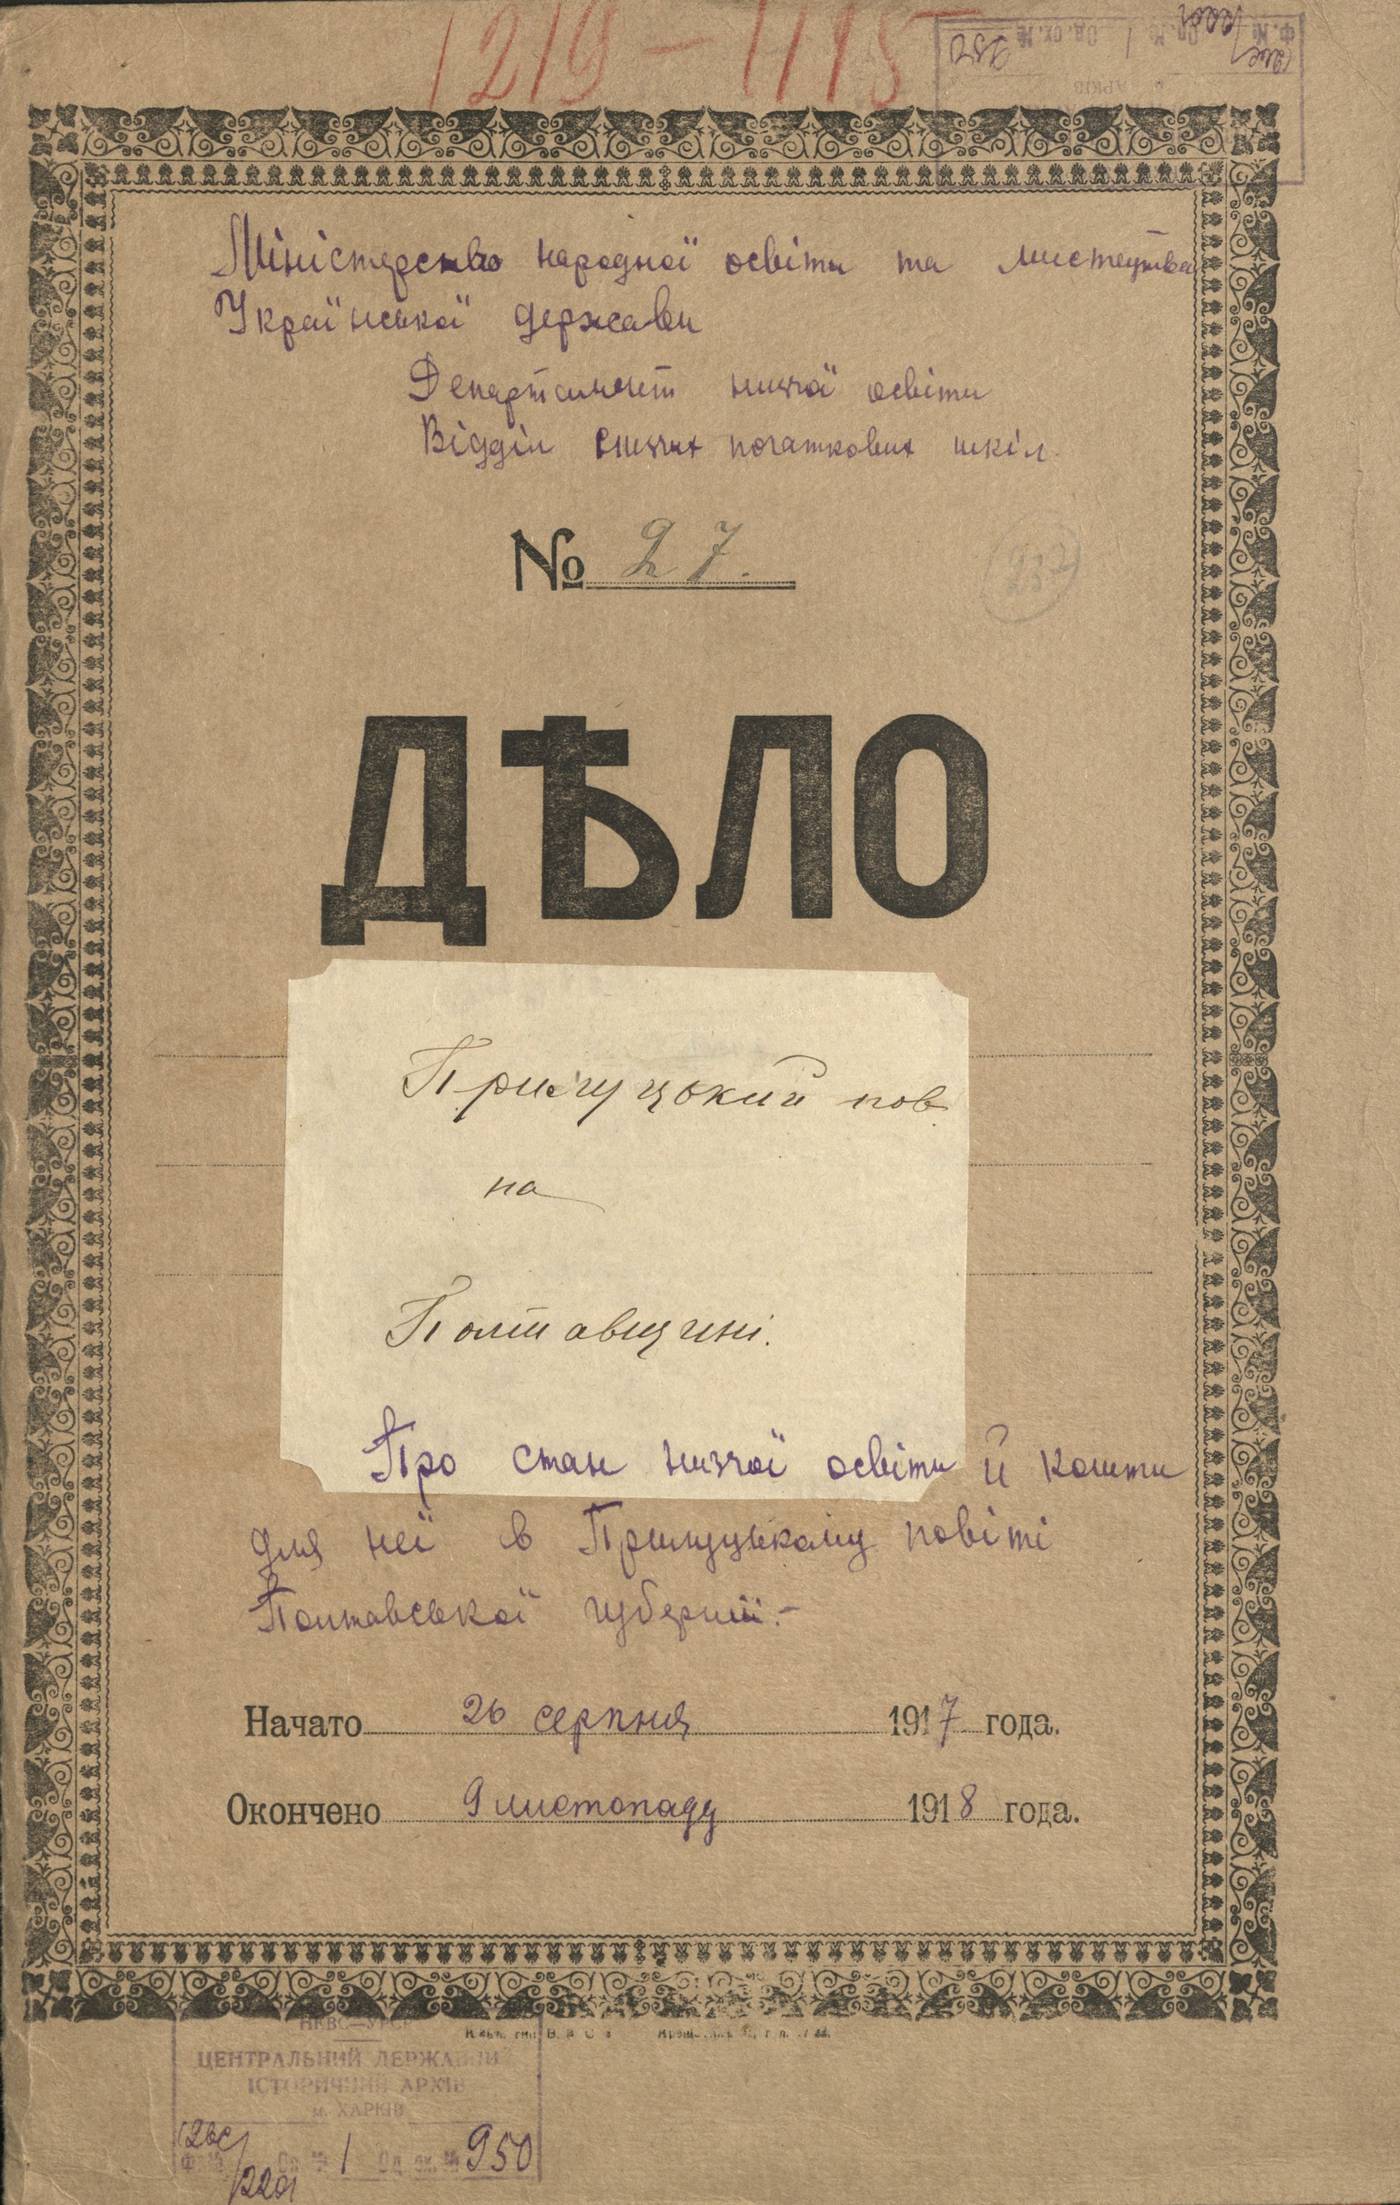 1219 — 1115
Міністерство народної освіти та мистецтва
Української держави
Департамент нижчої освіти
Відділ нижчих початкових шкіл.
№ 27.
ДѢЛО
Прилуцький пов.
на
Полтавщині.
Про стан нижчої освіти й кошти
для неї в Прилуцькому повіті
Полтавської губернії.-
Начато 26 серпня 1917 года.
Окончено 9 листопаду 1918 года.
НКВС—УРСР
ЦЕНТРАЛЬНИЙ ДЕРЖАВНИЙ
ІСТОРИЧНИЙ АРХІВ
м. ХАРКІВ
Ф. № Оп. № 1 Од. сх. № 950
2201